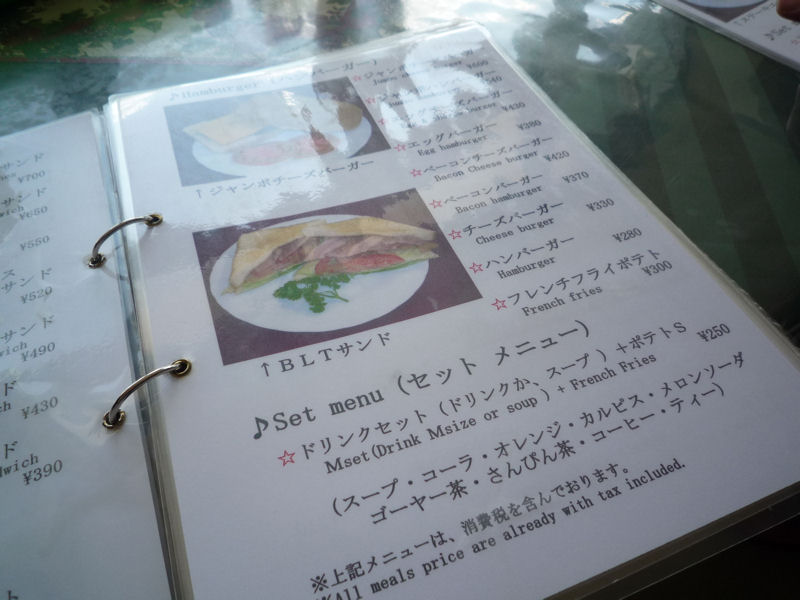 サンド
¥700
サンド
wich
¥650
¥550
ス
サンド
¥520
サンド
wich
¥490
ド
¥430
ド
dwich
¥390
♪Hamburger (ハンバーガー)
↑ジャンボチーズバーガー
↑BLTサンド
¥600
¥430
☆エッグバーガー ¥380
Egg hamburger
☆ベーコンチーズバーガー
Bacon Cheese burger ¥420
☆ベーコンバーガー ¥370
Bacon hamburger
☆チーズバーガー ¥330
Cheese burger
☆ハンバーガー ¥280
Hamburger
☆フレンチフライポテト
French fries ¥300
♪Set menu (セット メニュー)
☆ドリンクセット(ドリンクか、スープ)+ポテトS ¥250
Mset(Drink Msize or soup)+ French Fries
(スープ・コーラ・オレンジ・カルピス・メロンソーダ
ゴーヤー茶・さんぴん茶・コーヒー・ティー)
※上記メニューは、消費税を含んでおります。
※All meals price are already with tax included.
♪Set